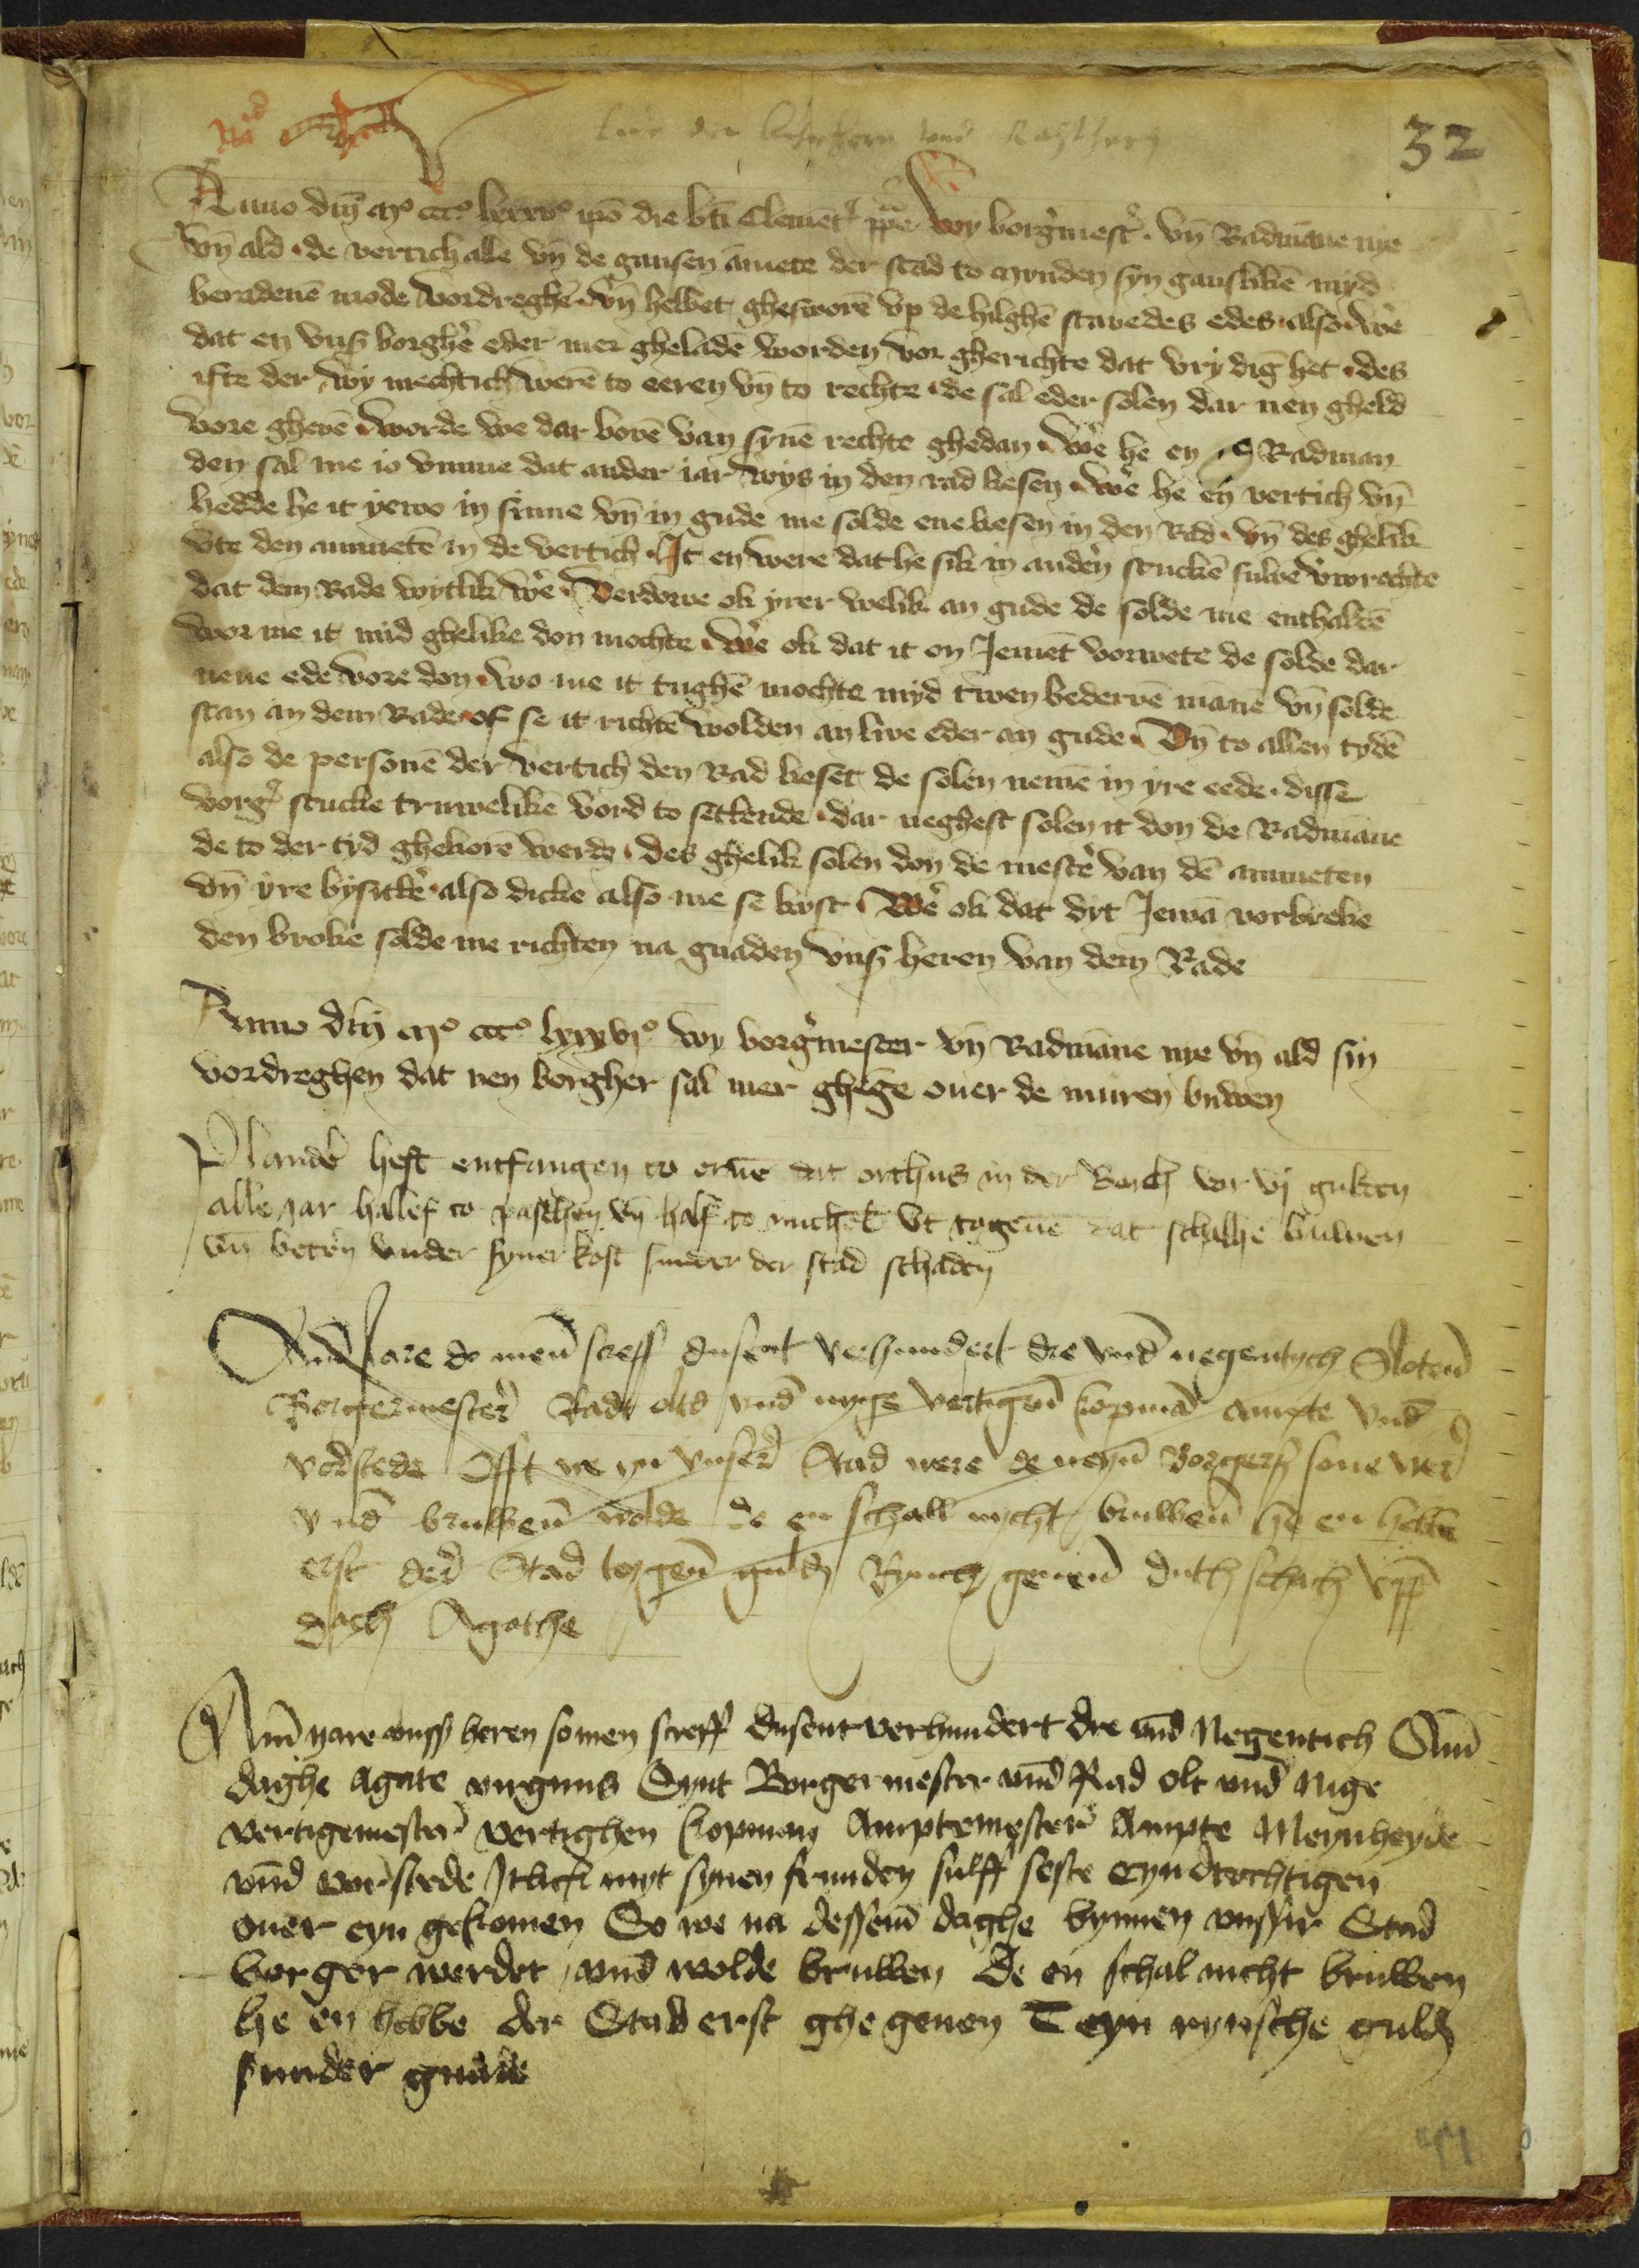 32
Anno dnī mº cccº lxxxº ipō die bti Clemēt ppe Wy borgmest. vn̄ Radmāne nye
vn̄ ald. de vertich alle vn̄ de gansen āmete der stad to mynden syn gansliken myd
beradenē mode vordreghē. vn̄ hebbet ghesworē vp de hilghē stavedes edes. also. wē
dat en vns borghē eder mer gheladē worden vor gherichte dat vry dīg het. des
ifte der wy mechtich werē to eeren vn̄ to rechte. de sal eder solen dar nen gheld
vore ghevē. worde we dar bovē van synē rechte ghedan. wē he en Radman
den sal me io vmme dat ander iar wys in den rad kesen. wē he en vertich vn̄
hedde he it yewo in sinne vn̄ in gude me solde ene kesen in den Rad. vn̄ des ghelik
vte den ammetē in de vertich. It en were dat he sik in andēn stuckē sulve vwrochte
dat dem Rade wytlik wē. Verdorve ok yrer welik an gude de solde me enthaldē
wor me it mid ghelike don mochte. wē ok dat it en Jemēt vorwete de solde dar
nene ede vore don. wo me it tughē mochte myd twen bedervē mānē vn̄ solde
stan an dem Rade. of se it richtē wolden an live eder an gude. Vn̄ to allen tydē
also de personē der vertich den Rad keset de solen nemē in yre eede. disse
vorg stucke truwelikē vord to settende. dar neghest solen it don de Radmāne
de to der tyd ghekorē werdē. des ghelik solen don de mestē van dē ammeten
vn̄ yre bysittē. also dicke also me se kust. Wē ok dat dyt Jemā vorbreke
den broke solde me richten na gnaden vns heren van dem Rade
Anno dnī mº cccº lxxxvjº wy borgmester vn̄ Radmāne nye vn̄ ald sin
vordreghen dat nen borgher sal mer ghēge ouer de muren buwen
heft entfangen to eruē dat orthus in der Bech vor vj gulden
alle jar hallef to paschen vn̄ half to michel vt togeuē dat schal he buwen
vn̄ betern vnder syner kost sunder der stad schaden
Jare do men screff dusent verhundert dre vnd negentych
Borgermester Rad old vnd nyge vertigen kopmā ampte vnd
vorstede Offt we yn vnser Stad were de neyn borgers sone were
vnd bruwen wolde de en schall nycht bruwen he en hebbe
erst der Stad teygen guldē Rynsch geuen duth schach vpp
dach Agathe
Am yare vnss heren so men screff dusent verhundert dre vnd Negentich Am
daghe Agate virginis Synt Borgermester vnd Rad olt vnd Nige
vertigemester vertighen kopman Amptemester Ampte Meynheyde
vnd vorstede Itlick myt synen frunden sulff seste eyndrechtigen
ouer eyn gekomen So we na dessem daghe bynnen vnsser Stad
borger werdet vnd wolde bruwen De en schal nicht bruwen
he en hebbe der Stad erst ghegeuen Teyn rynsche guldē
sunder gnade